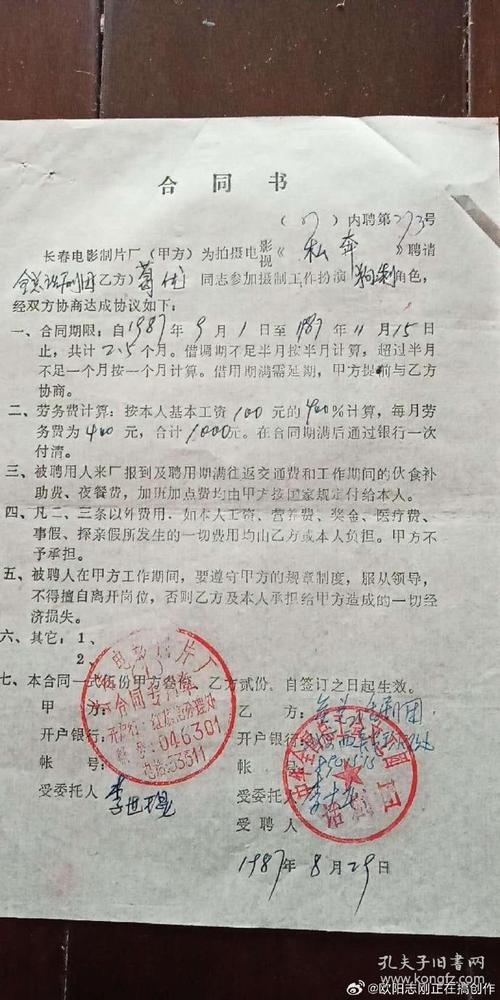 合同书
（87）内聘第273号
长春电影制片厂（甲方）为拍摄电影视《私奔》聘请
全总话剧团（乙方）葛优同志参加摄制工作扮演角色，
经双方协商达成协议如下：
一、合同期限：自1987年9月1日至1987年11月15日
止，共计2.5个月。借调期不足半月按半月计算，超过半月
不足一个月按一个月计算。借用期满需延期，甲方提前与乙方
协商。
二、劳务费计算：按本人基本工资100元的400%计算，每月劳
务费为400元，合计1000元。在合同期满后通过银行一次
付清。
三、被聘用人来厂报到及聘用期满往返交通费和工作期间的伙食补
助费、夜餐费，加班加点费均由甲方按国家规定付给本人。
四、凡二、三条以外费用，如本人工资、营养费、奖金、医疗费、
事假、探亲假所发生的一切费用均由乙方或本人负担。甲方不
予承担。
五、被聘人在甲方工作期间，要遵守甲方的规章制度，服从领导，
不得擅自离开岗位，否则乙方及本人承担给甲方造成的一切经
济损失。
六、其它：1、
2、
七、本合同一式伍份甲方叁份，乙方贰份。自签订之日起生效。
甲方：
乙方：全总话剧团
开户银行：
开户银行：
帐号：
帐号：
受委托人
受委托人
李世
受聘人
电影制片厂
合同专用章
046301
电话53311
话剧团
1987年8月29日
孔夫子旧书网
@欧阳志刚正在搞创作